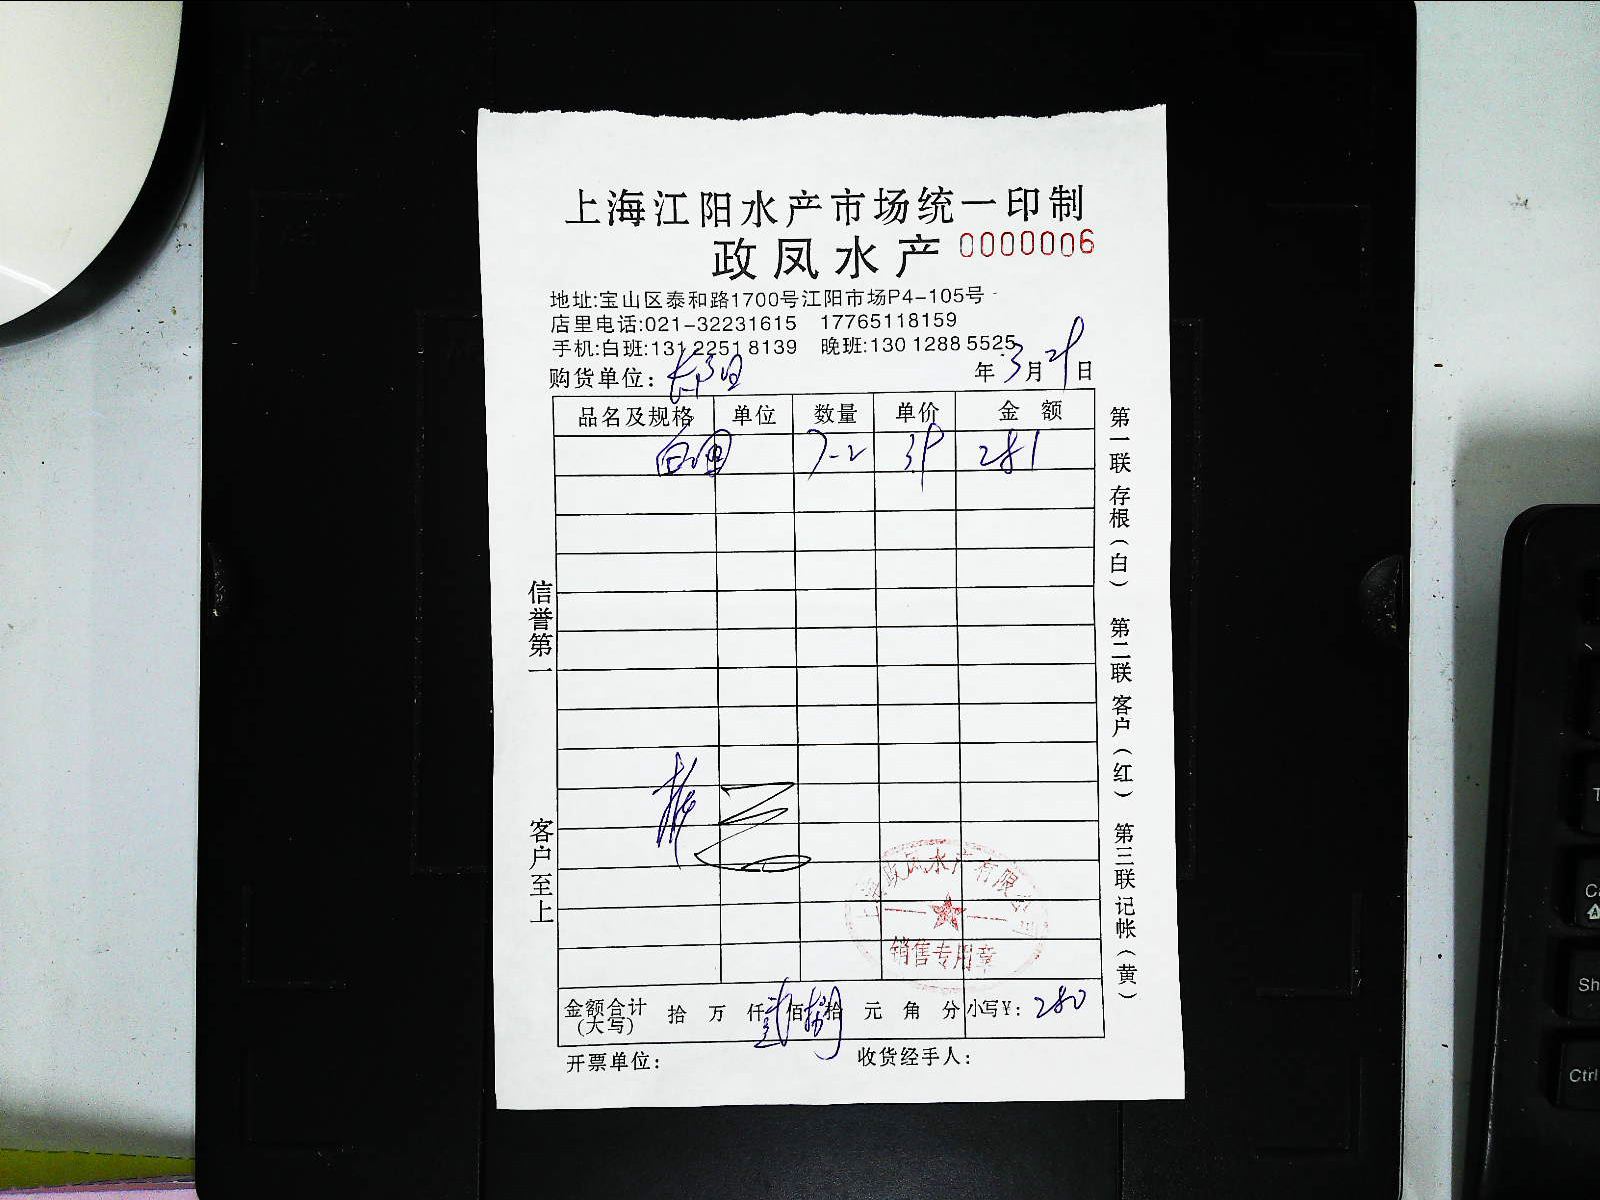 上海江阳水产市场统一印制
政凤水产 0000006
地址:宝山区泰和路1700号江阳市场P4-105号
店里电话:021-32231615 17765118159
手机:白班:131 2251 8139 晚班:130 1288 5525
购货单位: 年 3月 29日
品名及规格 单位 数量 单价 金额
7-2 39 281
信誉第一
客户至上
第一联 存根(白) 第二联 客户(红) 第三联 记帐(黄)
上海政凤水产有限公司
销售专用章
金额合计(大写) 拾 万 仟 贰佰 捌拾 元 角 分 小写¥: 280
开票单位: 收货经手人: